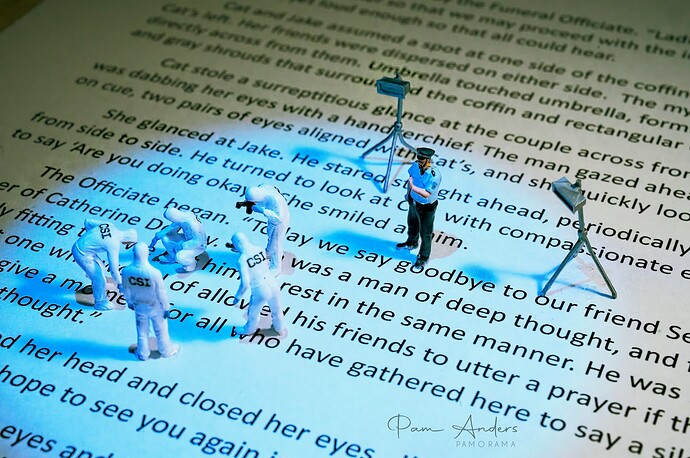 by the Funeral Officiate. "Lad
loud enough so that we may proceed with the
Cat and Jake assumed a spot at one side of the coffin
Cat's left. Her friends were dispersed on either side. The my
directly across from them. Umbrella touched umbrella, form
and gray shrouds that surrou the coffin and rectangular
Cat stole a surreptitious glance at the couple across from
was dabbing her eyes with a hand erchief. The man gazed ahea
on cue, two pairs of eyes aligned at's, and sh quickly loo
She glanced at Jake. He stared ght ahead, periodically
from side to side. He turned to look at with compassionate e
to say 'Are you doing oka she smiled a im.
The Officiate began. ay we say goodbye to our friend Se
er of Catherine D
ly fitting was a man of deep thought, and
t one w him rest in the same manner. He was
give a m of allow his friends to utter a prayer if th
thought." for all who have gathered here to say a sil
d her head and closed her eyes
hope to see you again i
eyes and
CSI
CSI
CSI
Pam Anders
PAMORAMA